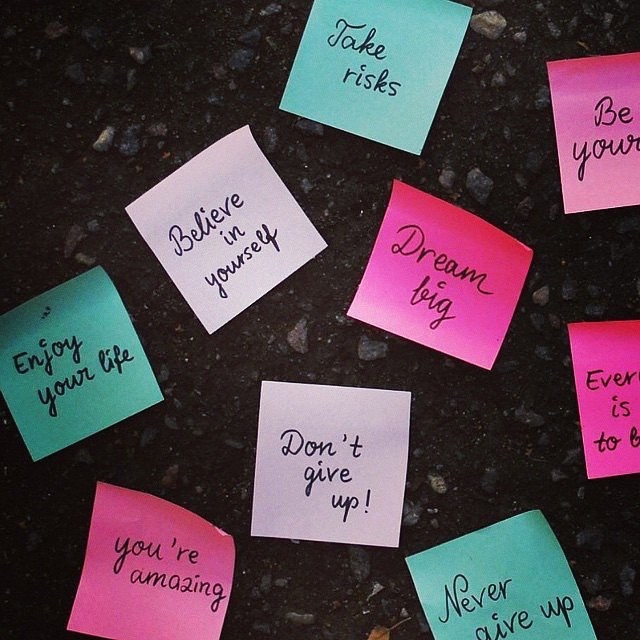 Take
risks
Be
your
Believe
in
yourself
Dream
big
Enjoy
your life
is
to
Don't
give
up!
you're
amazing
Never
give up